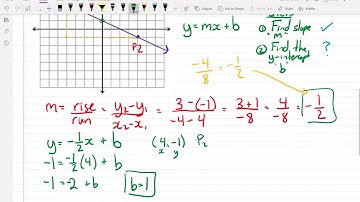 y=mx+b
① Find slope ✓
m
② Find the ?
y-intercept
b
P2
-4/8 = -1/2
m = rise/run = y₂-y₁/x₂-x₁ = 3-(-1)/-4-4 = 3+1/-8 = 4/-8 = -1/2
y = -1/2x + b (4,-1) P₂
x y
-1 = -1/2(4) + b
-1 = -2 + b b=1